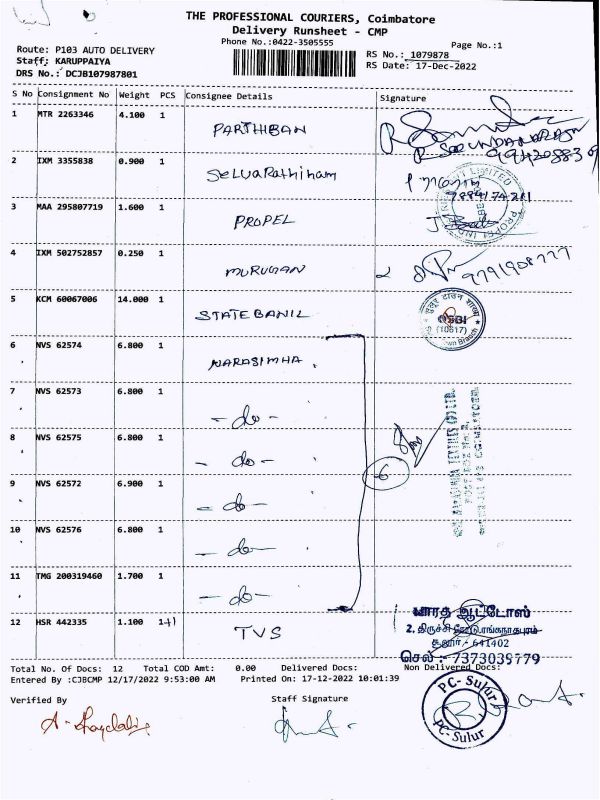 THE PROFESSIONAL COURIERS, Coimbatore
Delivery Runsheet - CMP
Phone No.:0422-3505555
Page No.:1
Route: P103 AUTO DELIVERY
RS No.: 1079878
Staff: KARUPPAIYA
RS Date: 17-Dec-2022
DRS No.: DCJB107987801
S No Consignment No Weight PCS Consignee Details Signature
1 MTR 2263346 4.100 1 PARTHIBAN
R SOUNDARARAJN
2 IXM 3355838 0.900 1 Selvarathinam
3 MAA 295807719 1.600 1 PROPEL
4 IXM 502752857 0.250 1 MURUGAN 9791908777
5 KCM 60067006 14.000 1 STATE BANK
SBI
(10617)
6 NVS 62574 6.800 1 NARASIMHA
7 NVS 62573 6.800 1 - do -
8 NVS 62575 6.800 1 - do -
6
9 NVS 62572 6.900 1 - do -
10 NVS 62576 6.800 1 - do -
11 TMG 200319460 1.700 1 - do -
12 HSR 442335 1.100 1+1 TVS
பாரத ஆட்டோஸ்
2, திருச்சி ரோடு, ரங்கநாதபுரம்
சூலூர் - 641402
செல் : 7373039779
Total No. Of Docs: 12 Total COD Amt: 0.00 Delivered Docs: Non Delivered Docs:
Entered By :CJBCMP 12/17/2022 9:53:00 AM Printed On: 17-12-2022 10:01:39
PC- Sulur
PC-Sulur
Verified By Staff Signature